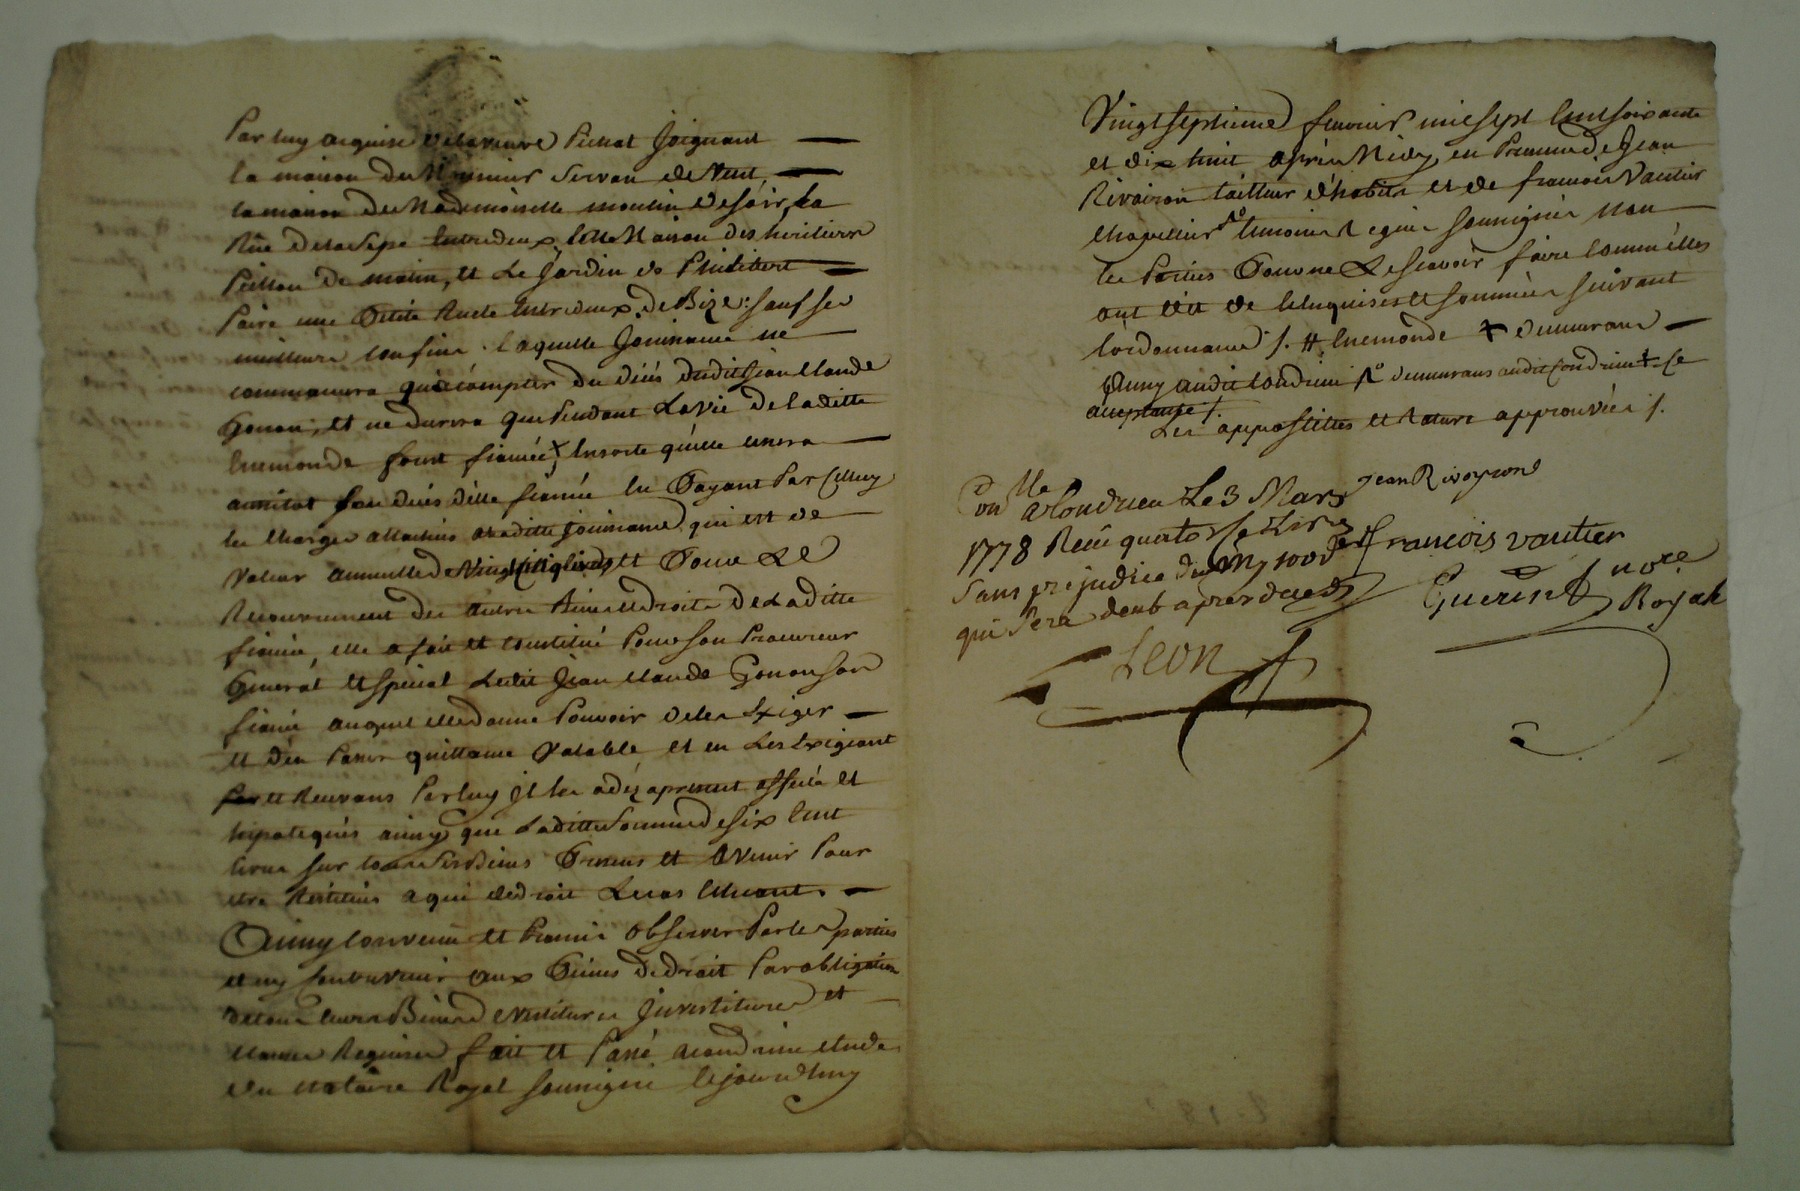 Par luy acquise de la veuve Pichat joignant
la maison du Monsieur Servan de vent,
la maison de Mademoiselle moulin de soir, la
Rüe de la Sepe entredeux, celle Maison des héritiers
Peillon de matin, et Le jardin de Philibert
Paire une Petite Ruele entredeux, de Bize: sauf ses
meilleurs confins. laquelle jouissance ne
commencera qu'à compter du déces dudit Jean Claude
Gonon, et ne durera que Pendant La vie de laditte
Enemonde sont fiancée + Ensorte qu'elle cessera
aussitot son déces ditte fiancée En Payant Par Celluy
les charges attachées a laditte jouissance qui est de
valeur annuelle de Vingt cinq livres, et Pour Le
Recouvrement des autres Biens et droits de Laditte
fiancée, elle a fait et constitué Pour son Procureur
General et special Ledit Jean Claude Gonon son
fiancé auquel elle donne Pouvoir de les Exiger
et d'en Passer quittance valable et en Les Exigeant
et Recevans Par luy il les a dez apresent assurés et
hipotequés ainsy que Laditte somme de six Cent
livres sur tous ses Biens Presens et Avenir Pour
etre Restitués a qui de droit Le cas Echeant.
Ainsy convenu et Promis observer Par les parties
et ny contrevenir aux Peines de droit Par obligation
de tous leurs Biens investitures et
clauses Requises fait et Passé a Condrieu etude
du notaire Royal soussigné le jourd'huy
Vingt septieme fevrier mil sept Cent soixante
et dix huit après Midy, en Presence de Jean
Rivoiron tailleur d'habits et de francois Vautier
chapellier temoins Requis soussignés non
les Parties Pour ne Le scavoir faire comm'elles
ont dit de ce Enquises et sommées suivant
l'ordonnance /. # Enemonde + demeurant
Passy audit Condrieu demeurans audit Condrieu + Ce
acceptante /.
Les appostilles et Rature approuvées /.
Jean Rivoyron
Con lle a Condrieu Le 3 Mars
1778 Receu quatorse Livres
francois vautier
Sans prejudice du
qui Sera deub apres deceds
Guerin nore
Royal
Leon